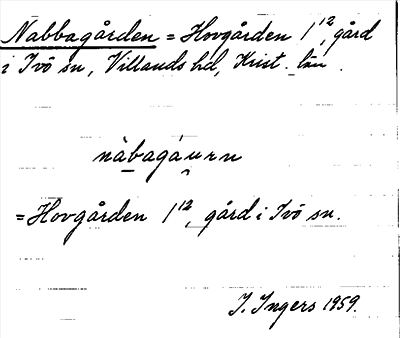 Nabbagården = Hovgården 1¹², gård
i Ivö sn, Villands hd, Krist. län.
nàbagá̱u̯rn
= Hovgården 1¹², gård i Ivö sn.
I. Ingers 1959.